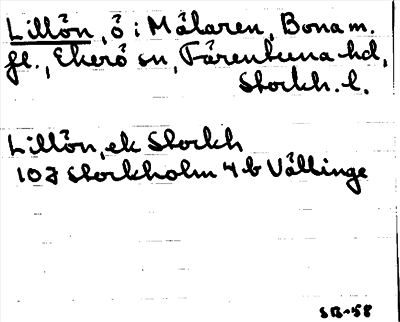 Lillön, ö i Mälaren, Bona m.
fl., Ekerö sn, Färentuna hd,
Stockh. l.
Lillön, ek Stockh
10J Stockholm 4b Vällinge
SB-58